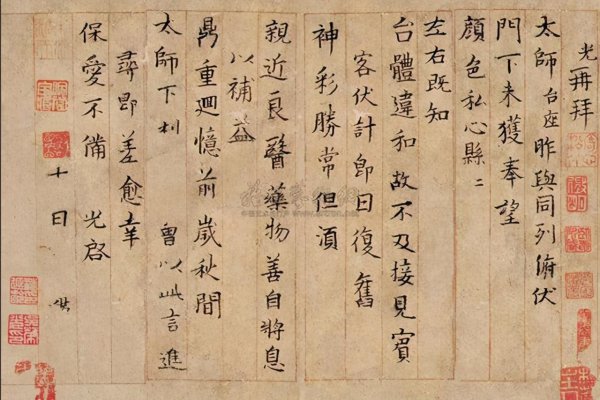 光再拜
太師台座昨與同列俯伏
門下未獲奉望
顏色私心縣〻
左右既知
台體違和故不及接見賓
客伏計即日復舊
神彩勝常但湏
親近良醫藥物善自將息
以補益
鼎重廻憶前歲秋間
太師下利 曾以此言進
尋即差愈幸
保愛不備 光啓
十日